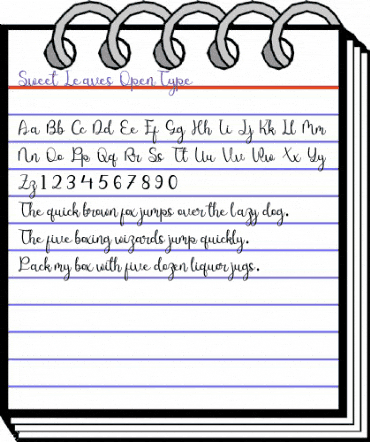 Sweet Leaves Open Type
Aa Bb Cc Dd Ee Ff Gg Hh Ii Jj Kk Ll Mm
Nn Oo Pp Qq Rr Ss Tt Uu Vv Ww Xx Yy
Zz 1 2 3 4 5 6 7 8 9 0
The quick brown fox jumps over the lazy dog.
The five boxing wizards jump quickly.
Pack my box with five dozen liquor jugs.